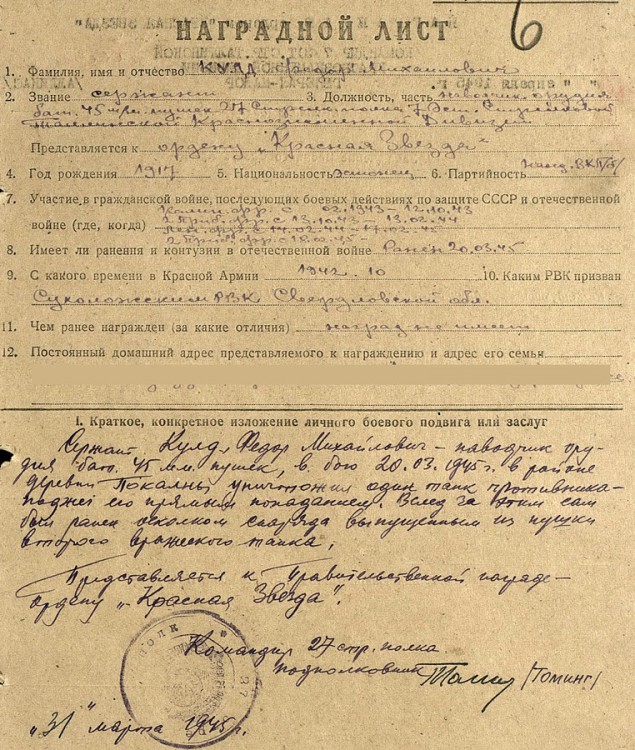 НАГРАДНОЙ ЛИСТ
6
1. Фамилия, имя и отчество КУЛД Федор Михайлович
2. Звание сержант 3. Должность, часть наводчик орудия
бат. 45 м/м пушек 27 Стрелк. полка 7 Эст. Стрелковой
Таллинской Краснознаменной Дивизии
Представляется к ордену „Красная Звезда"
4. Год рождения 1917 5. Национальность эстонец 6. Партийность канд. ВКП/б/
7. Участие в гражданской войне, последующих боевых действиях по защите СССР и отечественной
войне (где, когда) Калин. фр. с 03.1943 – 12.10.43
2 Приб. фр. с 13.10.43 – 13.02.44
Лен. фр. с 14.02.44 – 17.02.45
2 Приб. фр. с 18.02.45 –
8. Имеет ли ранения и контузии в отечественной войне Ранен 20.03.45
9. С какого времени в Красной Армии 1942.10 10. Каким РВК призван
Сухоложским РВК Свердловской обл.
11. Чем ранее награжден (за какие отличия) наград не имеет
12. Постоянный домашний адрес представляемого к награждению и адрес его семьи
I. Краткое, конкретное изложение личного боевого подвига или заслуг
Сержант Кулд, Федор Михайлович – наводчик ору-
дия бат. 45 м.м. пушек, в бою 20.03.1945 г. в районе
деревни Покалны уничтожил один танк противника –
поджег его прямым попаданием. Вслед за этим сам
был ранен осколком снаряда выпущенным из пушки
второго вражеского танка.
Представляется к Правительственной награде –
ордену „Красная Звезда".
Командир 27 стр. полка
подполковник (Томинг)
„31" марта 1945 г.